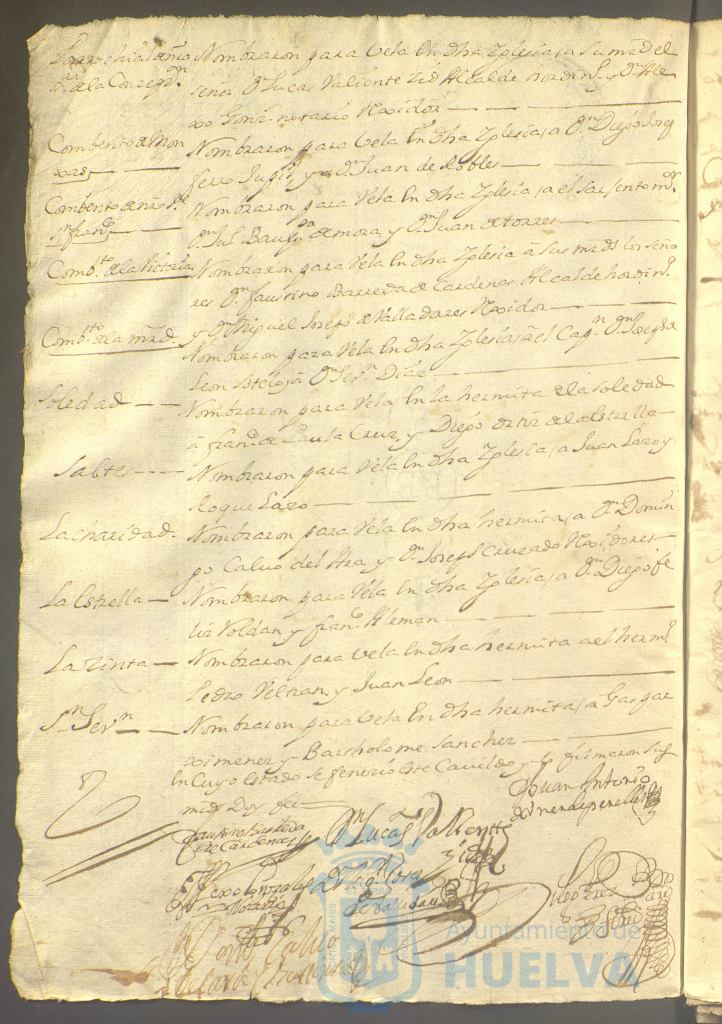 Parrochia de nra Nombraron para Vela En dha Yglesia, a Su md el
sra de la Conzepon señor Dn Lucas Valiente Zid Alcalde hordino y Dn Ale
xo Gonz. notario Rexidor
Combento de Mon Nombraron para Vela En dha Yglesia, a Dn Diego Joseph
xas, y Dn Juan de Robles
Combento de nro Pe Nombraron para Vela En dha Yglesia, a el Sarjento mr
Sn franco Dn Juan de torres
Combto de la Victoria Nombraron para Vela En dha Yglesia â Sus mrds los seño
res Dn faustino Barreda de Cardenas, Alcalde hordino
y Dn Miguel Joseph de Valladares Rexidor
Combto de la mrd. Nombraron para Vela En dha Yglesia, a el Capn Dn Joseph de
Leon Sotelo, a Dn Servn Diaz
Soledad Nombraron para Vela, En la hermita de la Soledad
â franco de Paula Cruz, y Diego ortiz de la Estrella
Saltes Nombraron para Vela En dha Yglesia, a Juan Lazo y
Roque Lazo
La charidad. Nombraron para Vela En dha hermita, a Dn Domin
go Calvo del Ara y Dn Joseph Cruzado Rexidores
La Estrella Nombraron para Vela En dha Yglesia, a Dn Diego fe
liz Roldan y franco Aleman
La Zinta Nombraron para Vela En dha hermita a el hermo
Pedro Veltran, y Juan Leon
Sn Sevn Nombraron para Vela En dha hermita, a Gaspar
Ximenez y Bartholome Sanchez
En Cuyo estado se fenezio este Cavildo y lo firmaron Sus
mrds Doy fee
Faustino Barreda
de Cardenas
Dn Lucas Valiente
Zid
Juan Antonio
Alexo Gonzales
Notario
Calvo
Ayuntamiento de
HUELVA